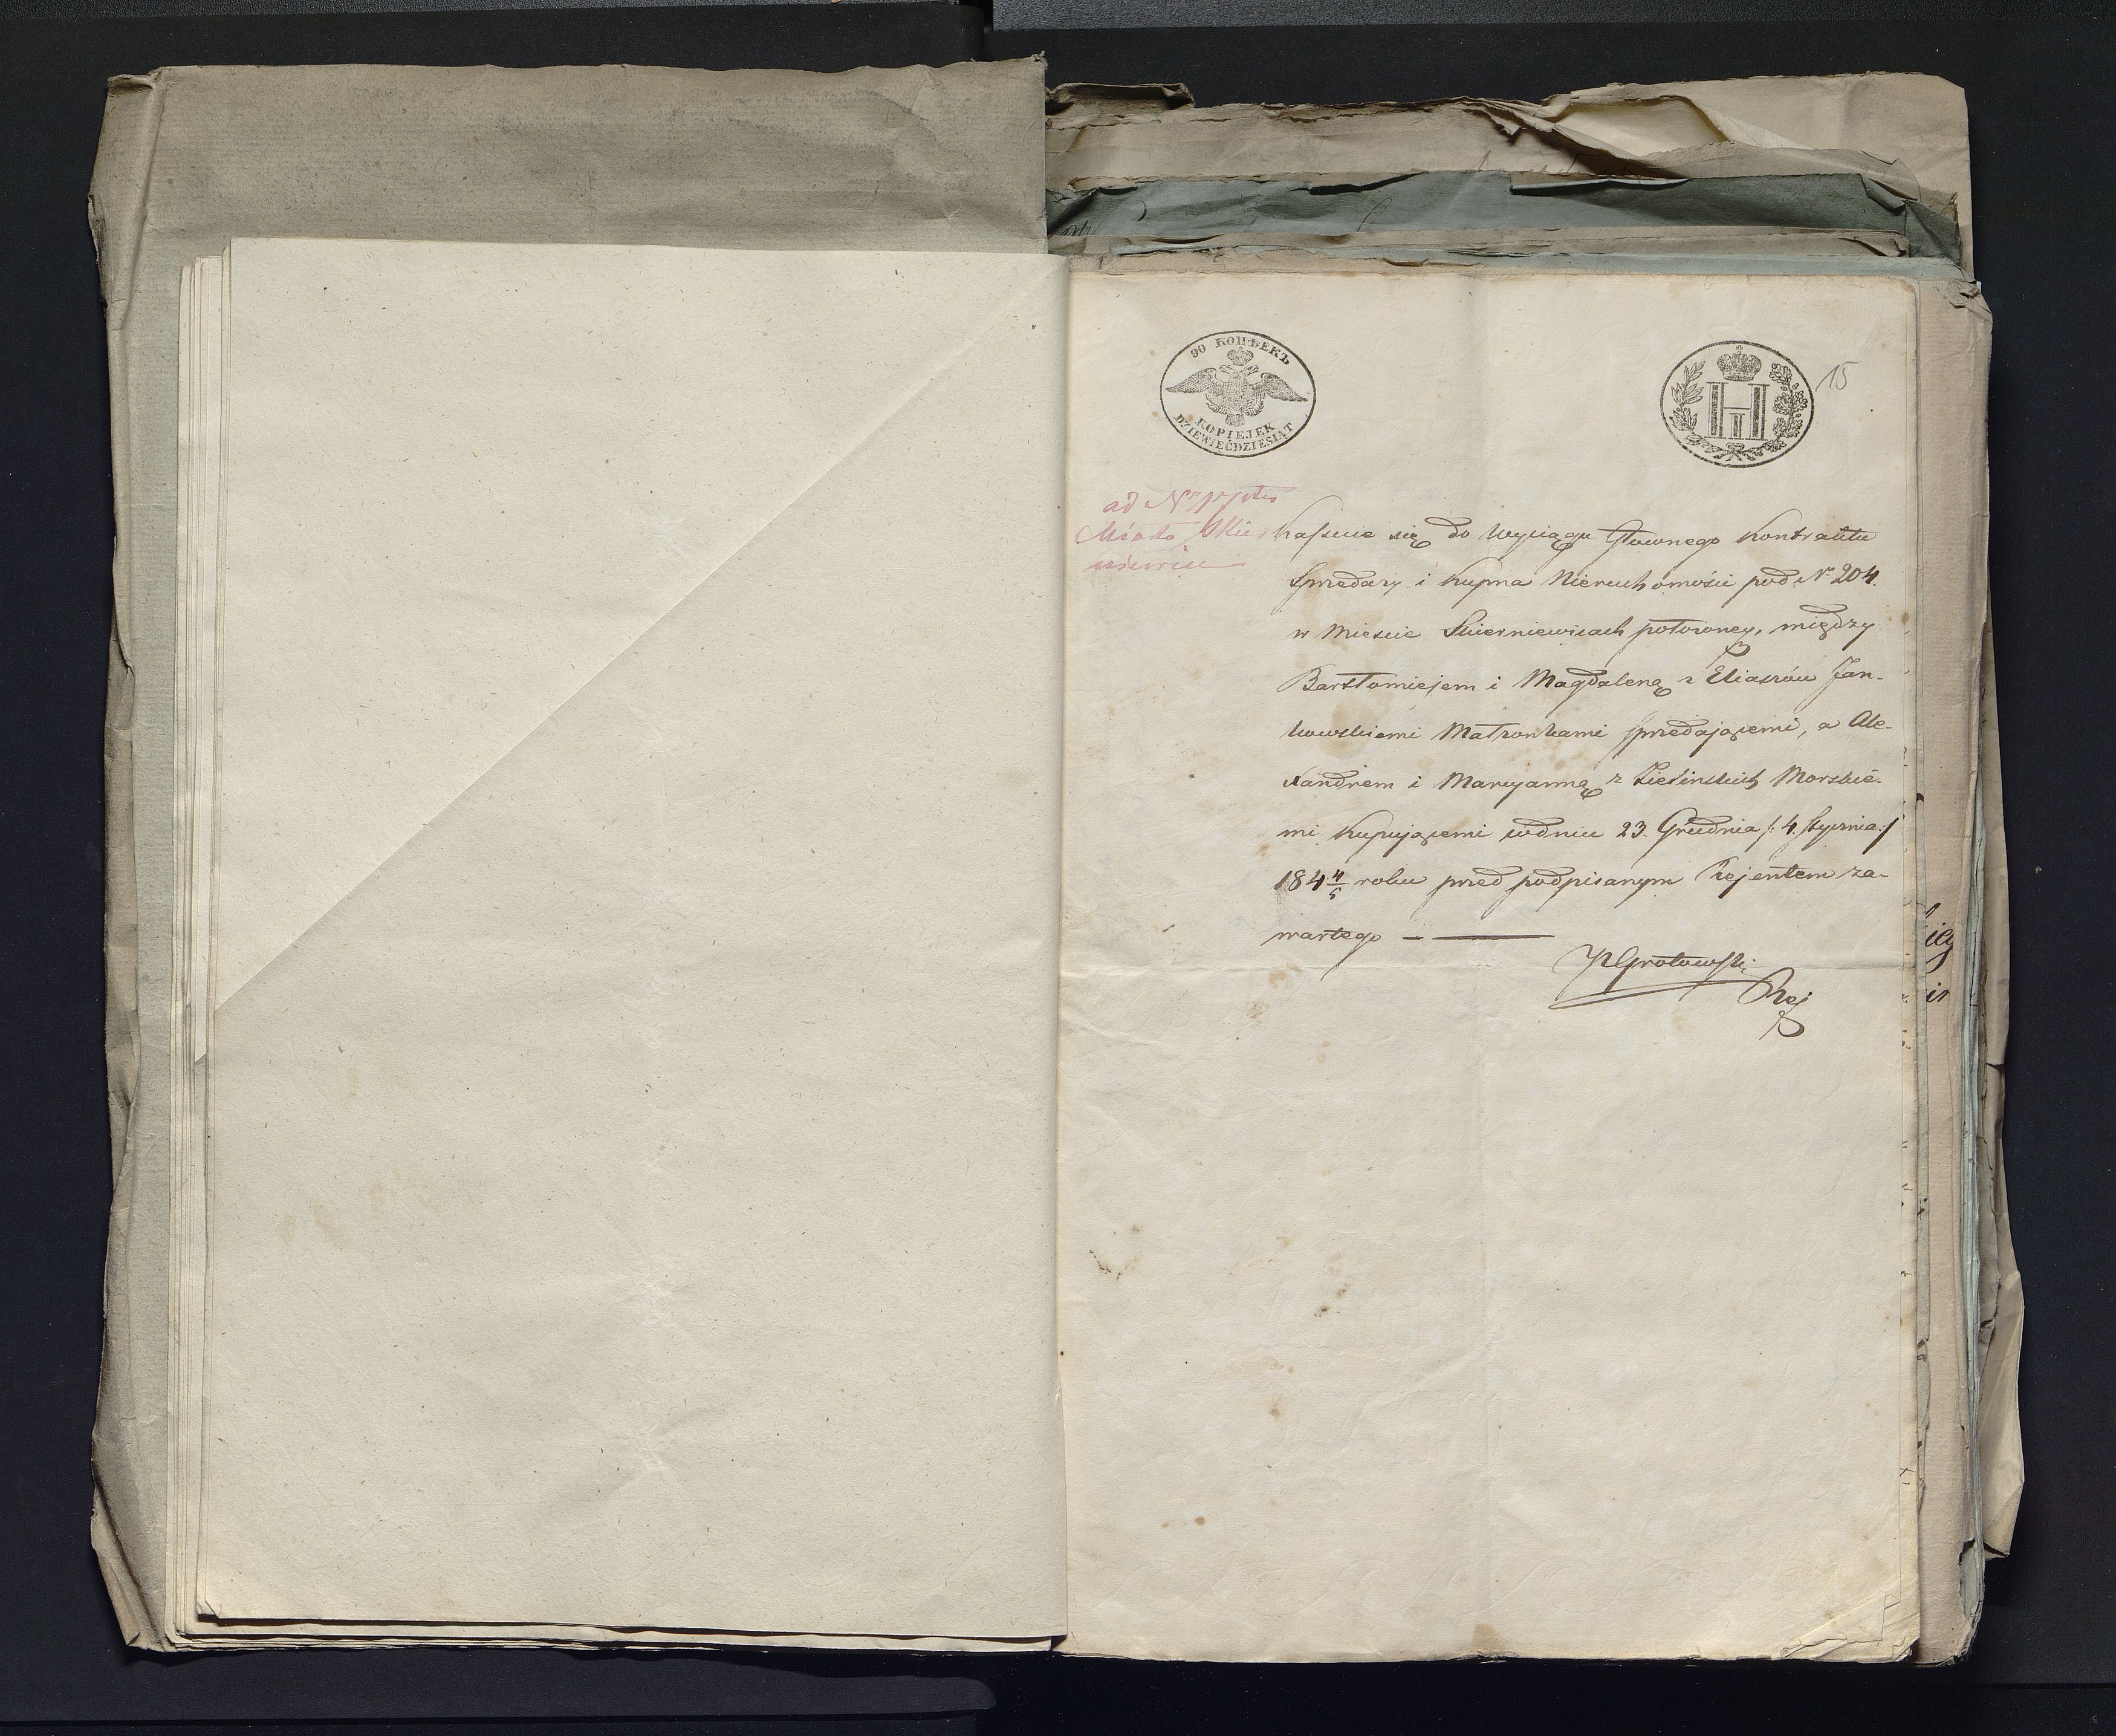 90 КОПѢЕКЪ
KOPIEJEK
DZIEWIĘĆDZIESIĄT
Н
II
15
ad Nr
Miasta Skier
niewice
Kassuie się do Wyciągu Głownego Kontraktu
Sprzedaży i Kupna Nieruchomości pod Nr 204.
w Mieście Skierniewicach położoney, między
Bartłomiejem i Magdaleną z Eliaszów Jan-
kowskiemi Małżonkami sprzedającemi, a Ale-
xandrem i Maryanną z Zielińskich Morskie-
mi Kupującemi w dniu 23. Grudnia /: 4. Stycznia :/
184 4/5 roku przed podpisanym Rejentem za-
wartego
Grotowski
Rej